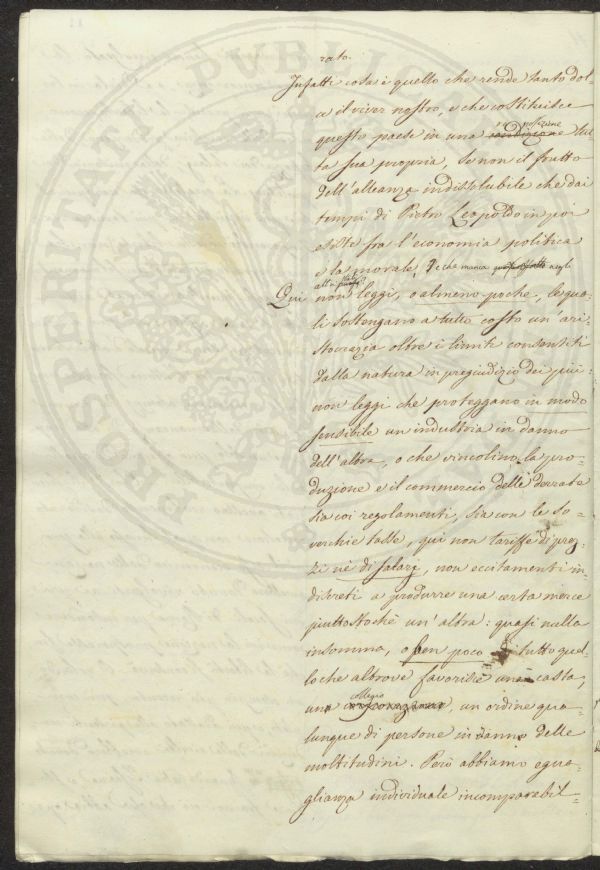 PROSPERITATI PUBLICAE
rato.
Infatti cosa è quello che rende tanto dol-
ce il viver nostro, e che costituisce
questo paese in una condizione posizione tut-
ta sua propria, se non il frutto
dell'alleanza indissolubile che dai
tempi di Pietro Leopoldo in poi
esiste fra l'economia politica
e la morale, e che manca negli
altri Stati?
Qui non leggi, o almeno poche, le qua-
li sostengano a tutto costo un'ari-
stocrazia oltre i limiti consentiti
dalla natura in pregiudizio dei più:
non leggi che proteggano in modo
sensibile un industria in danno
dell'altra, o che vincolino la pro-
duzione e il commercio delle derrate
sia coi regolamenti, sia con le so-
verchie tasse, qui non tariffe di prez-
zi nè di salarj, non eccitamenti in-
discreti a produrre una certa merce
piuttostochè un'altra: quasi nulla
insomma, o ben poco di tutto quel-
lo che altrove favorisce una casta,
un collegio corporazione, un ordine qua-
lunque di persone in danno delle
moltitudini. Però abbiamo egua-
glianza individuale incomparabil-